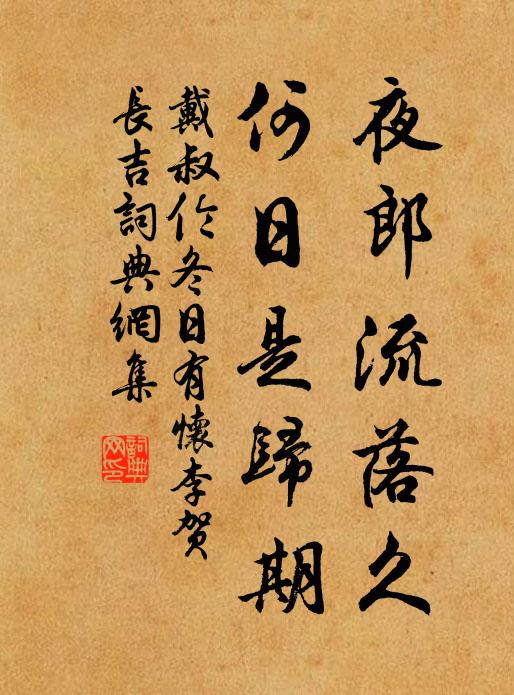 夜郎流落久
何日是歸期
戴叔伦冬日有懷李贺
長吉詞典網集
詞典网印